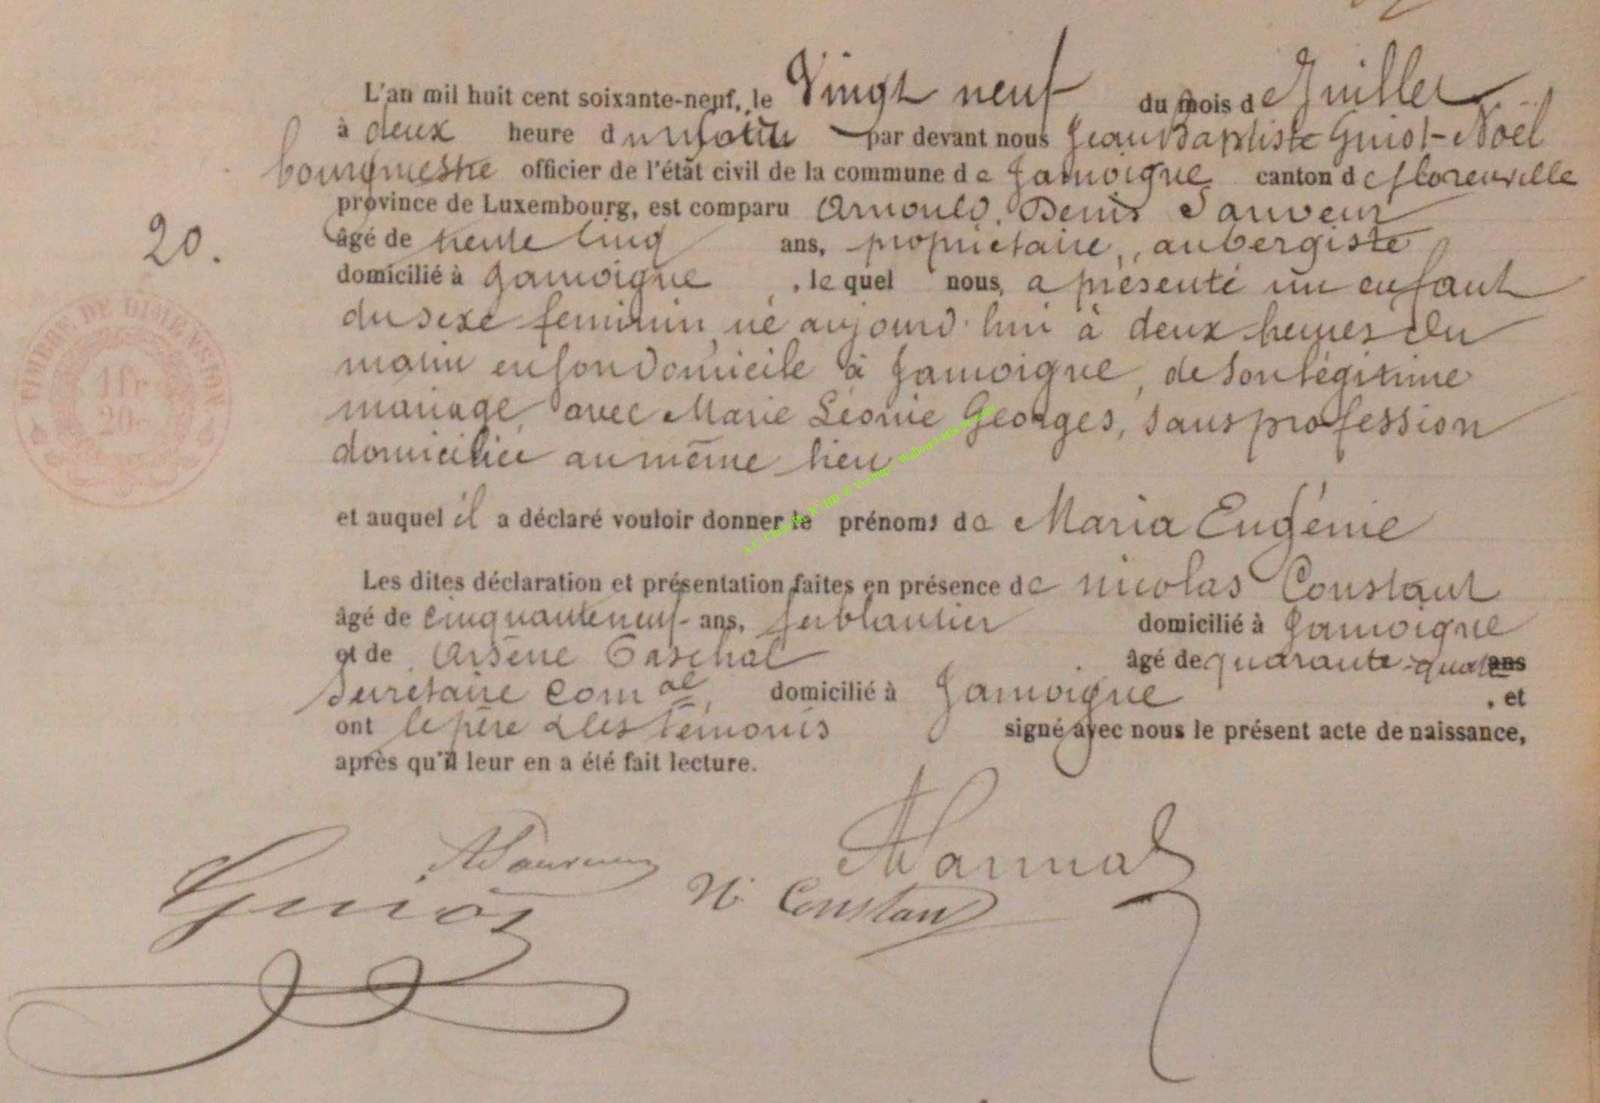 L'an mil huit cent soixante-neuf, le Vingt neuf du mois de Juillet
à deux heure du matin par devant nous Jean Baptiste Guiot-Noël
bourgmestre officier de l'état civil de la commune de Jamoigne canton de florenville
province de Luxembourg, est comparu Arnould, Denis Sauveur
20.
âgé de trente cinq ans, propriétaire, aubergiste
domicilié à Jamoigne, le quel nous, a présenté un enfant
du sexe feminin, né aujourd'hui à deux heures du
matin en son domicile à Jamoigne, de son légitime
mariage avec Marie Léonie Georges, sans profession
domiciliée au même lieu
et auquel il a déclaré vouloir donner le prénoms de Maria Eugénie
Les dites déclaration et présentation faites en présence de nicolas Constant
âgé de cinquante neuf ans, ferblantier domicilié à Jamoigne
et de Arsène âgé de quarante-quat ans
Secrétaire comal, domicilié à Jamoigne, et
ont le père & les témoins signé avec nous le présent acte de naissance,
après qu'il leur en a été fait lecture.
TIMBRE DE DIMENSION
1 fr
20c
ADSauveur
Guiot
N. Constant